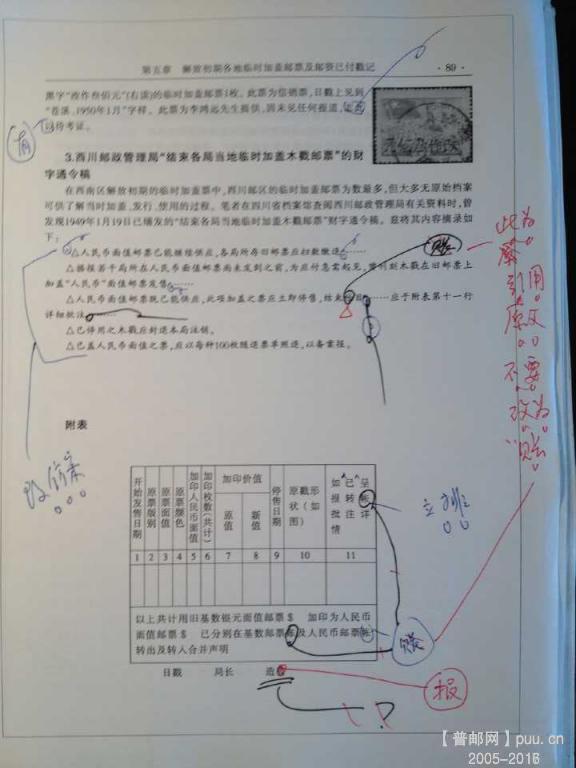 第五章 解放初期各地临时加盖邮票及邮资已付戳记 ·89·
黑字"改作叁佰元"(右读)的临时加盖邮票1枚。此票为信销票,日戳上见到
"苍溪.1950年1月"字样。此票为李鸿远先生提供,因未见任何报道,
以待考证。
有
3.西川邮政管理局"结束各局当地临时加盖木戳邮票"的财
字通令稿
在西南区解放初期的临时加盖票中,西川邮区的临时加盖邮票为数最多,但大多无原始档案
可供了解当时加盖、发行、使用的过程。笔者在四川省档案馆查阅西川邮政管理局有关资料时,曾
发现1949年1月19日已缮发的"结束各局当地临时加盖木戳邮票"财字通令稿。兹将其内容摘录如
下:
△人民币面值邮票已能继续供应,各局所存旧邮票应扫数缴造……
△据报若干局所在人民币面值邮票尚未发到之前,为应付急需起见,曾刊刻木戳在旧邮票上
加盖"人民币"面值邮票发售……
△人民币面值邮票既已能供应,此项加盖之票应立即停售,结束 目……应于附表第十一行
详细批注
△已停用之木戳应封送本局注销。
△已盖人民币面值之票,应以每种100枚随送票单照送,以备案报。
此为
引用
原文
不要
改为
"账"
附表
改仿宋
立排
开始发售日期 原票版别 原票面值 原票颜色 加印人民币面值 加印枚数(共计) 加印价值 停售日期 原戳形状(如图) 如已呈报转帐批注详情
原值 新值
1 2 3 4 5 6 7 8 9 10 11
以上共计用旧基数银元面值邮票$ 加印为人民币
面值邮票$ 已分别在基数邮票 及人民币邮票帐
转出及转入合并声明
账
日戳 局长 造
报
?
【普邮网】puu.cn
2005-2016